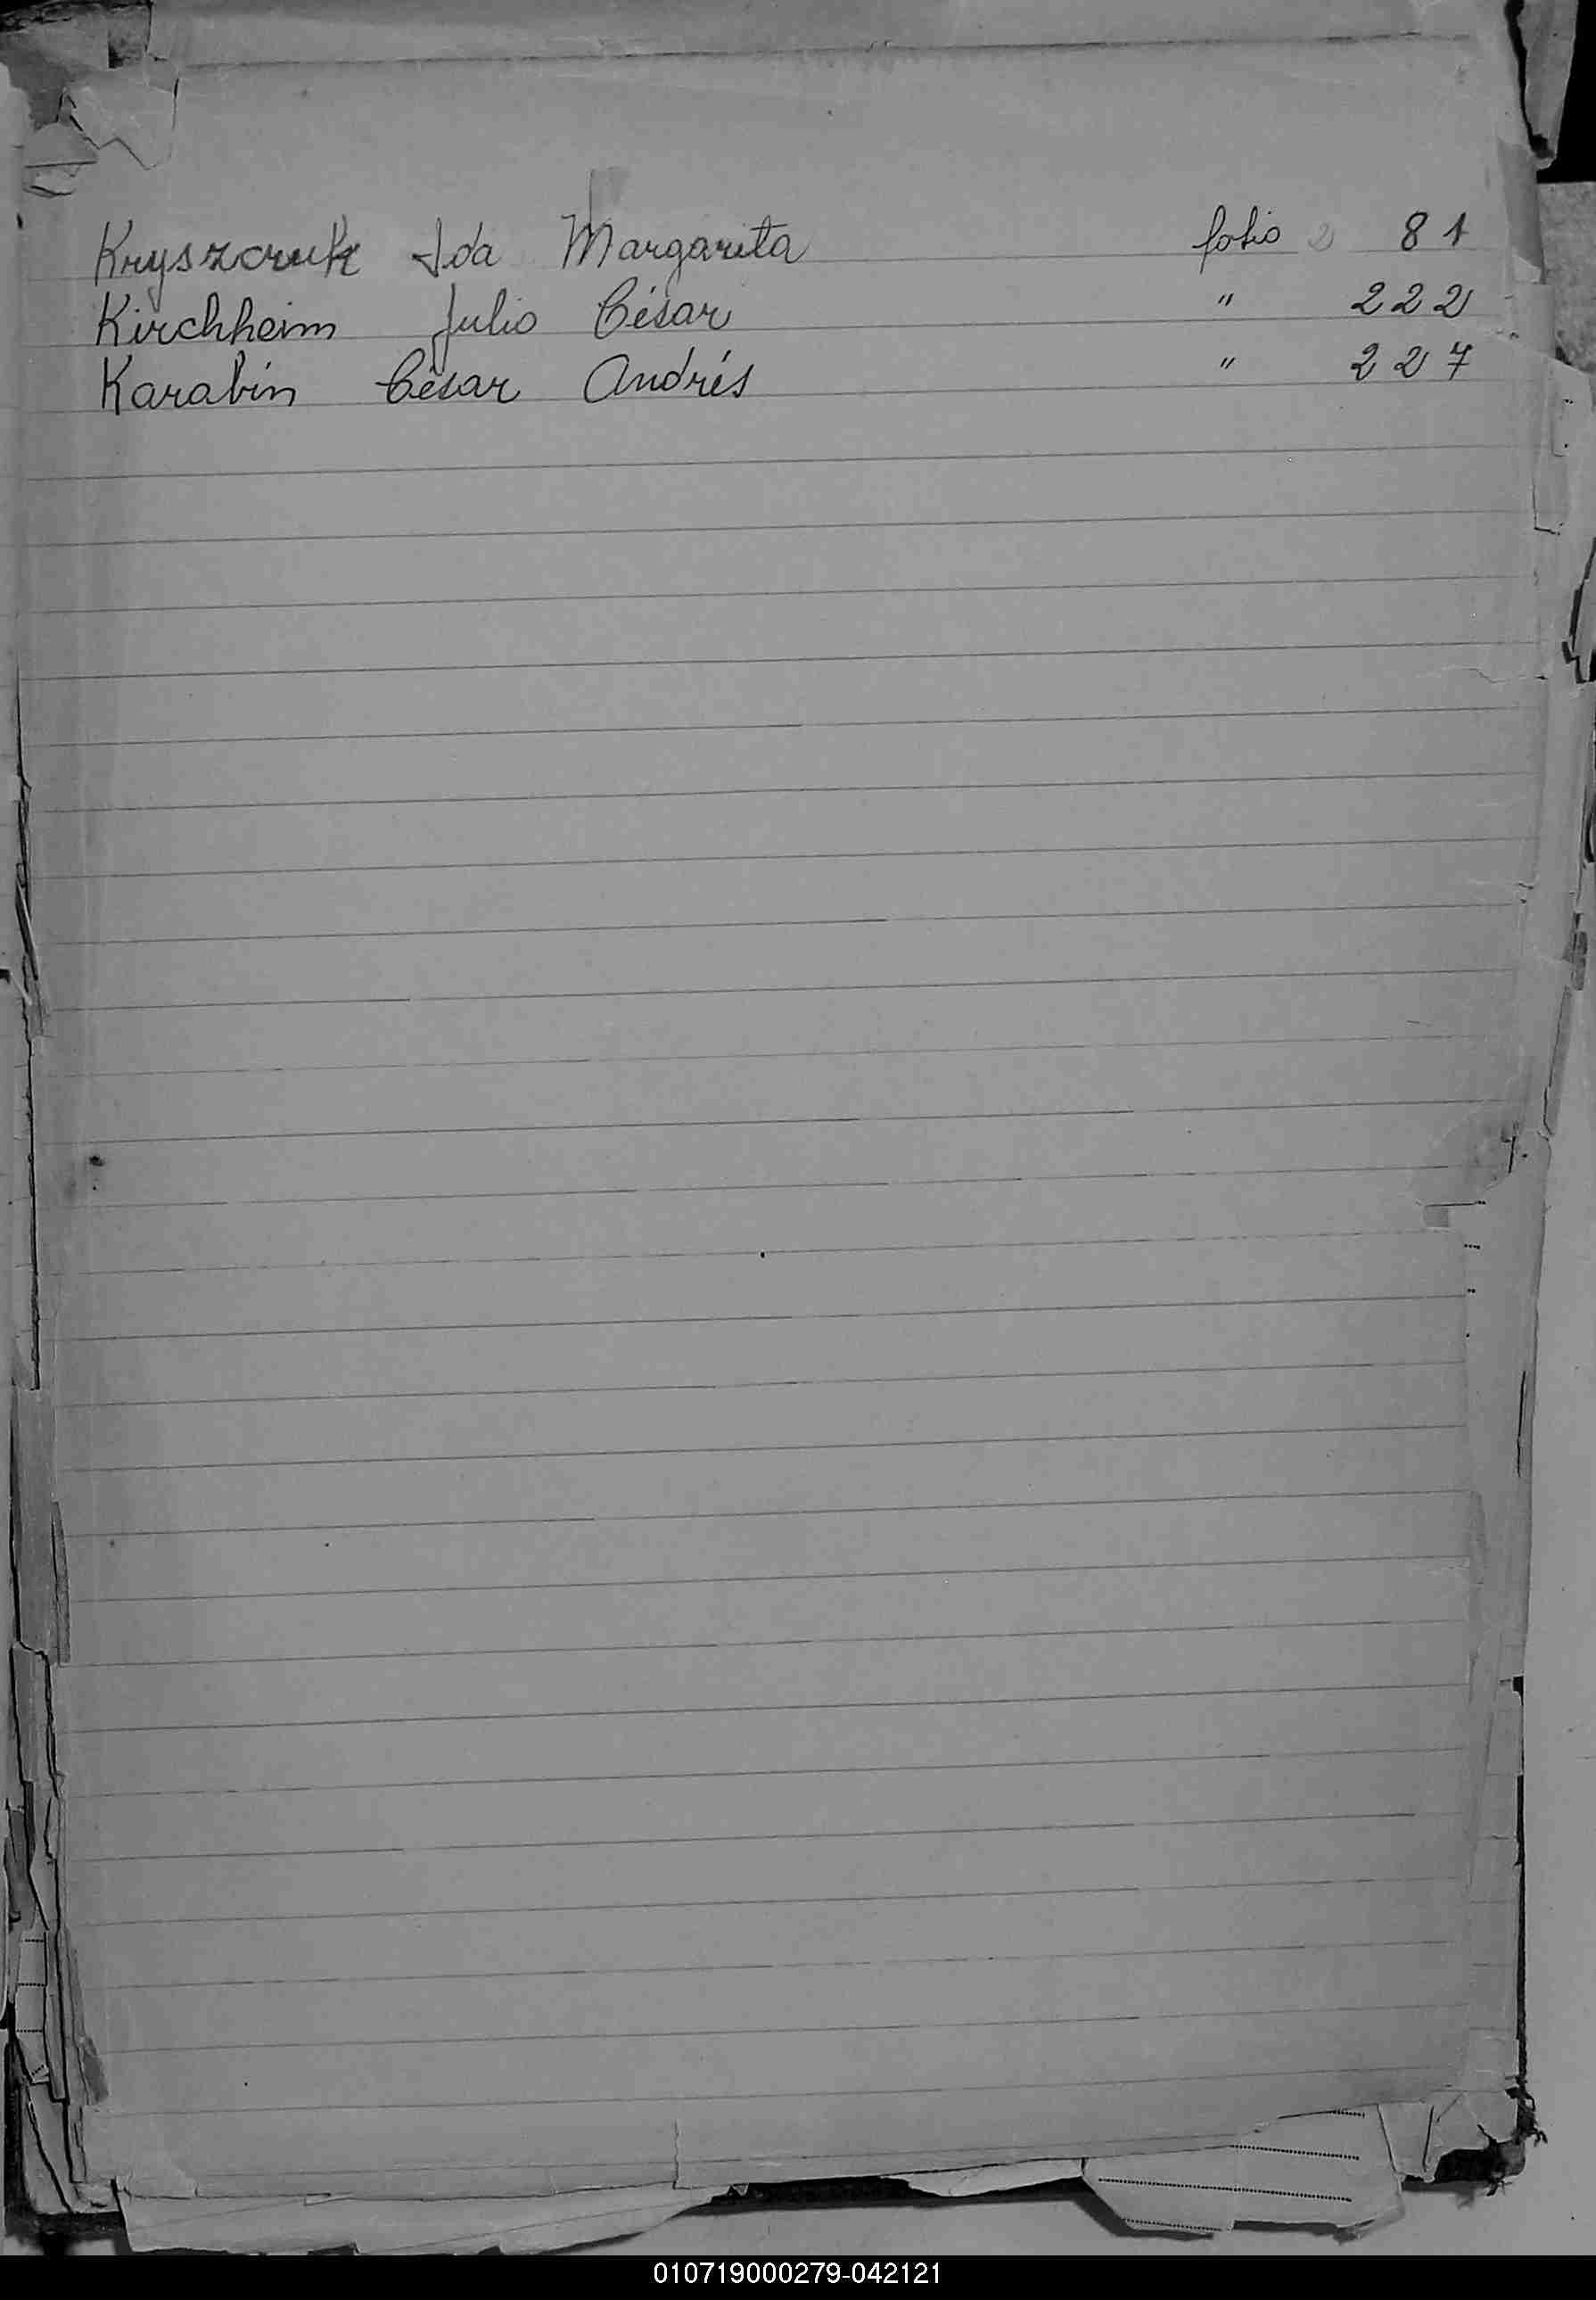 Kryszczuk Ida Margarita folio 81
Kirchheim Julio César " 222
Karabin César Andrés " 227
010719000279-042121